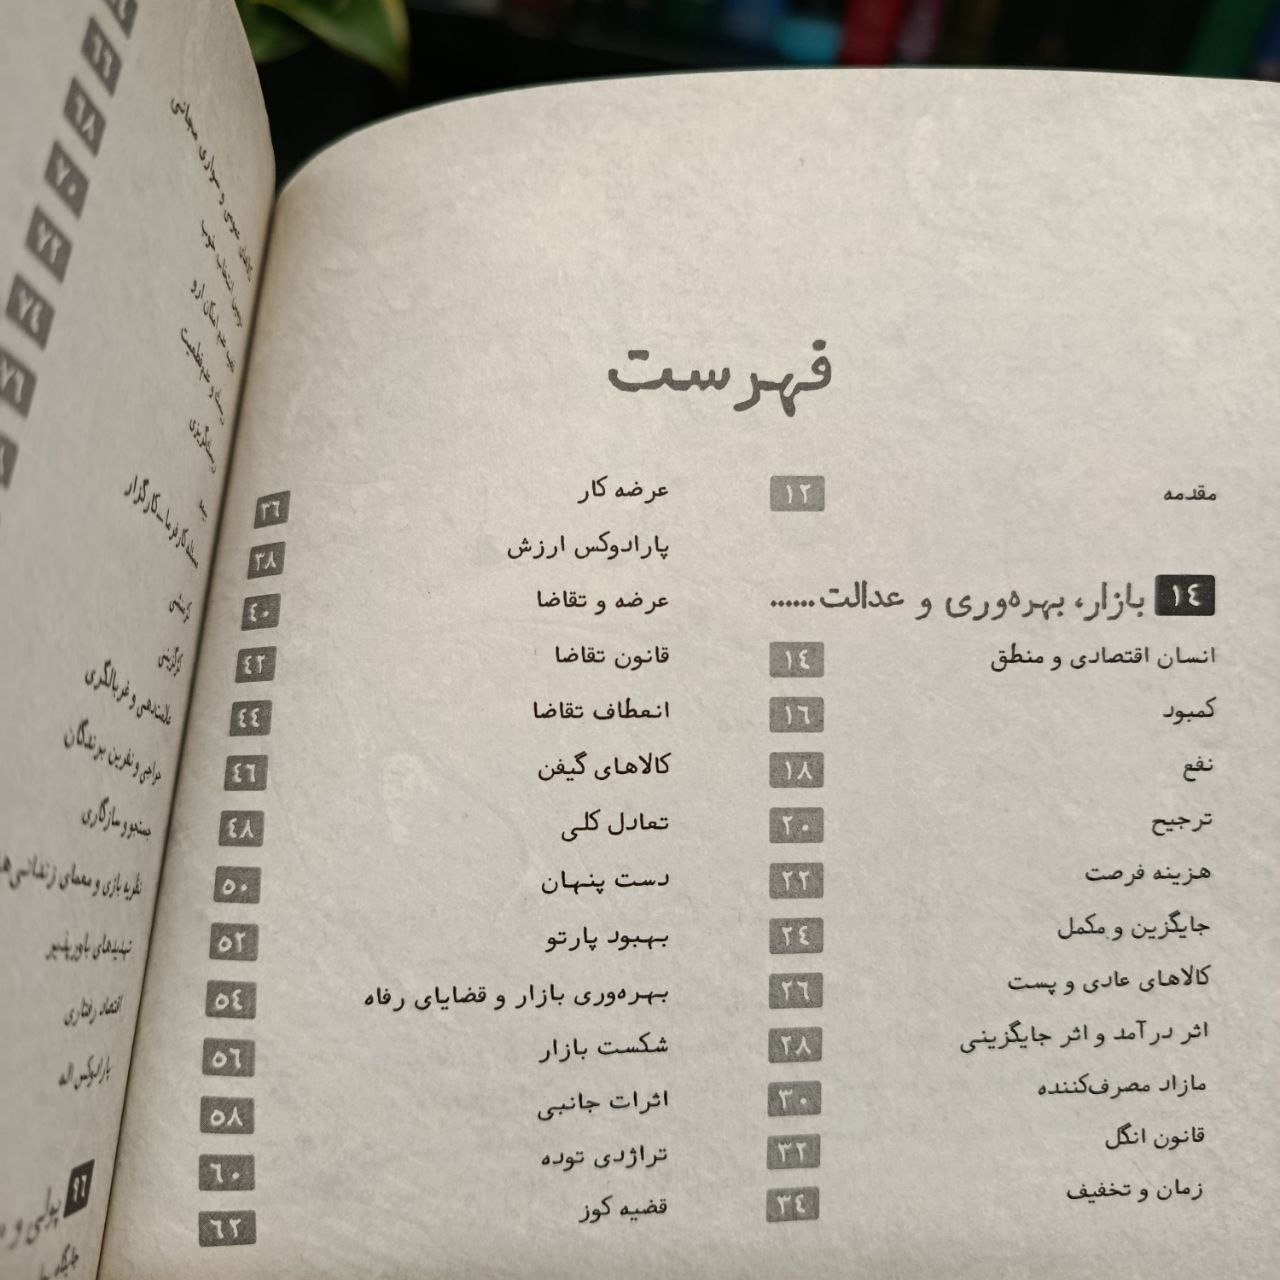 فهرست
مقدمه ۱۲
۱۴ بازار، بهره‌وری و عدالت......
انسان اقتصادی و منطق ۱۴
کمبود ۱۶
نفع ۱۸
ترجیح ۲۰
هزینه فرصت ۲۲
جایگزین و مکمل ۲۴
کالاهای عادی و پست ۲۶
اثر درآمد و اثر جایگزینی ۲۸
مازاد مصرف‌کننده ۳۰
قانون انگل ۳۲
زمان و تخفیف ۳۴
عرضه کار ۳۶
پارادوکس ارزش ۳۸
عرضه و تقاضا ۴۰
قانون تقاضا ۴۲
انعطاف تقاضا ۴۴
کالاهای گیفن ۴۶
تعادل کلی ۴۸
دست پنهان ۵۰
بهبود پارتو ۵۲
بهره‌وری بازار و قضایای رفاه ۵۴
شکست بازار ۵۶
اثرات جانبی ۵۸
تراژدی توده ۶۰
قضیه کوز ۶۲
کالاهای عمومی و سواری مجانی
ریسک و عدم‌قطعیت
ریسک‌گریزی
مسئله کارفرما_کارگزار
کژگزینی
علامت‌دهی و غربالگری
حراجی و نفرین برندگان
جستجو و سازگاری
نظریه بازی و معمای
تهدیدهای باورپذیر
اقتصاد رفتاری
پارادوکس
۶۶
۶۸
۷۰
۷۲
۷۴
۷۶
۹۶ پولی و